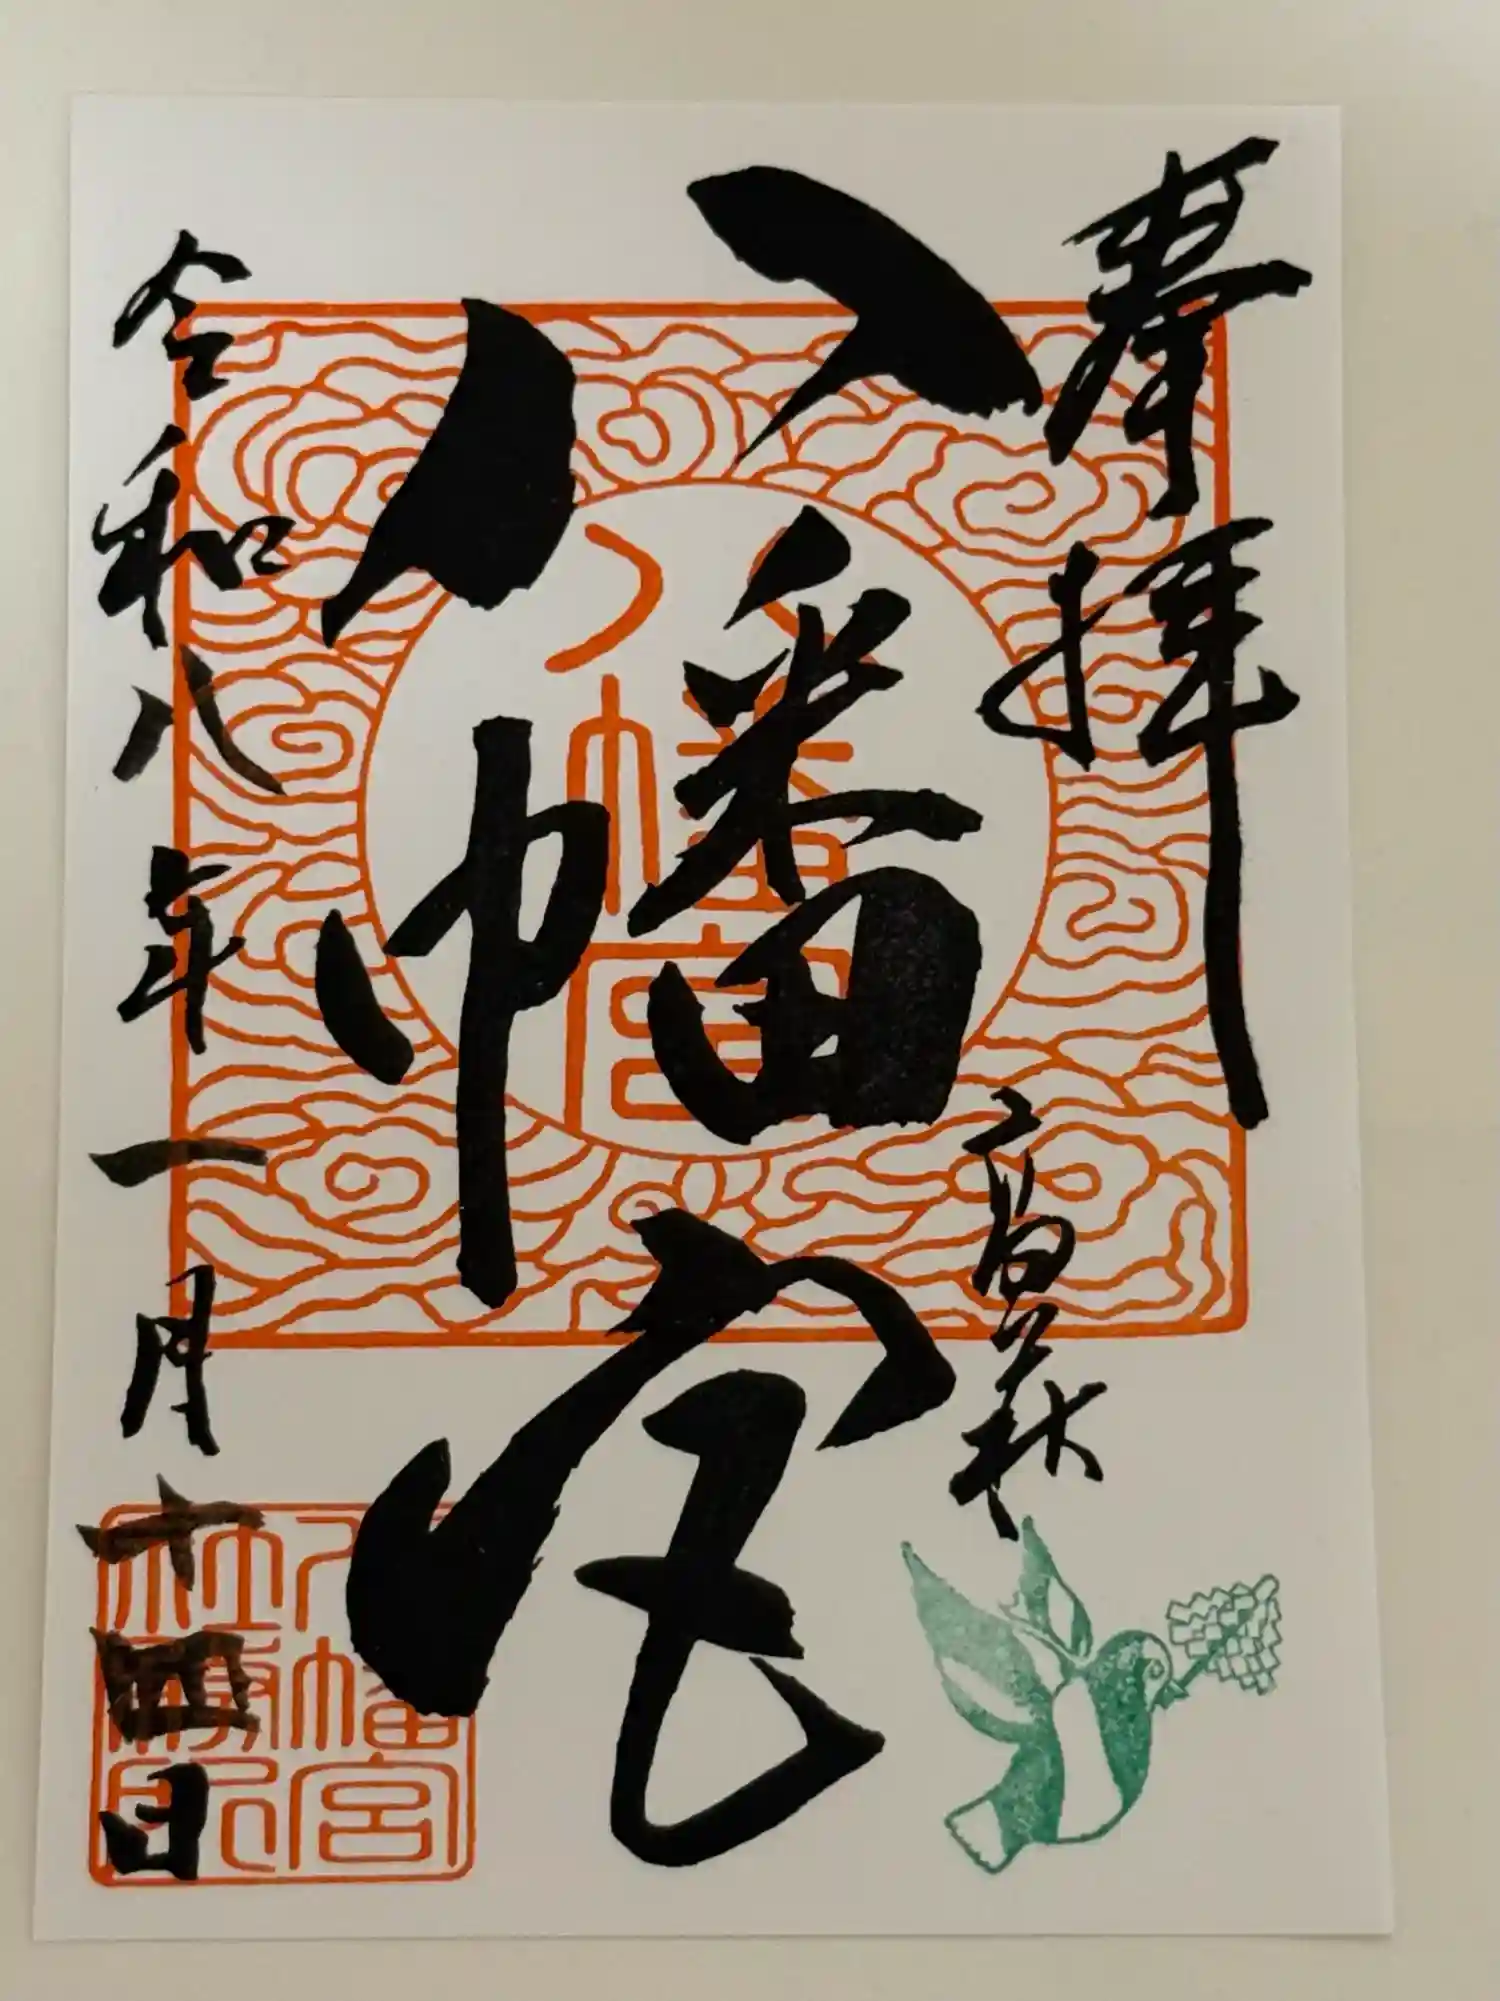 奉拝
高萩
八幡宮
八幡宮
令和八年一月十四日
八幡宮
社務所印